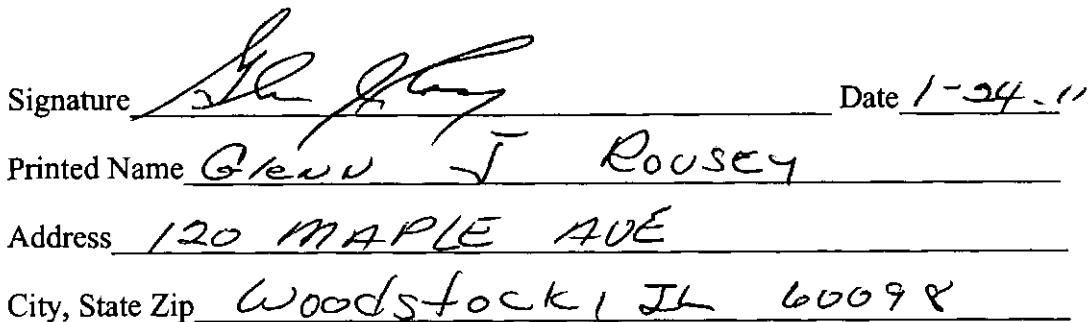 Signature Date 1-24-11
Printed Name Glenn J Rousey
Address 120 MAPLE AVE
City, State Zip Woodstock, IL 60098